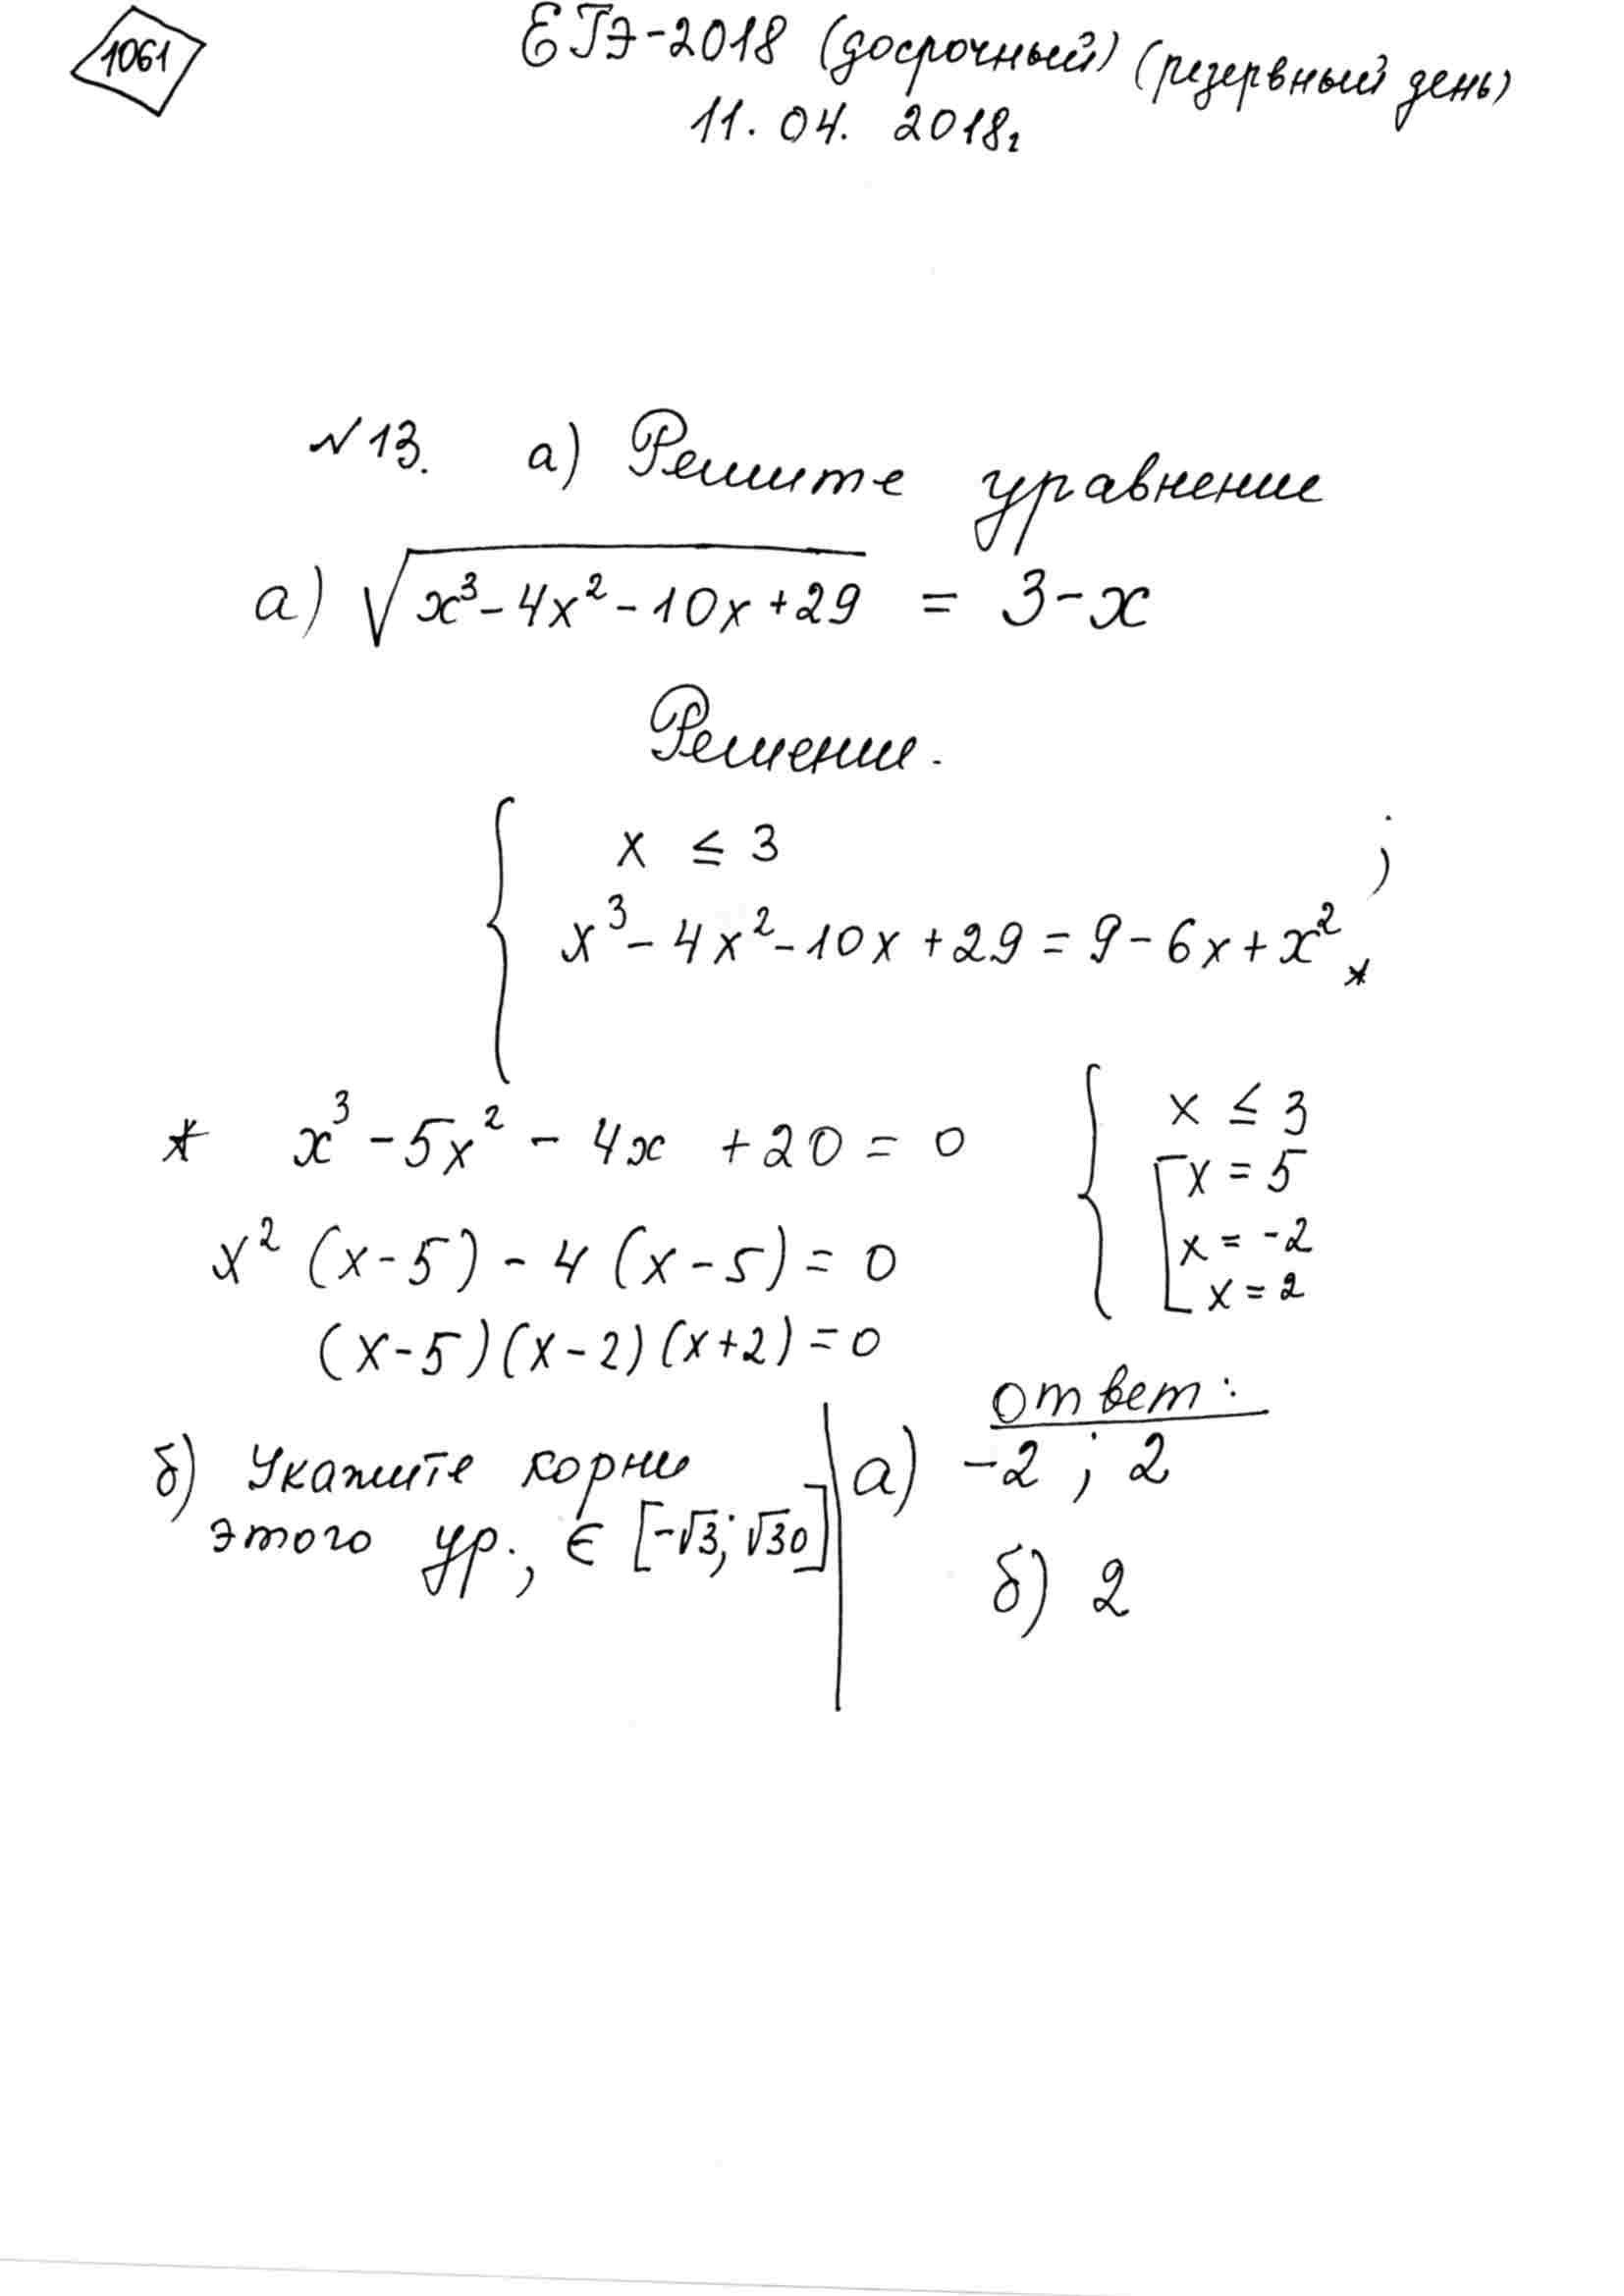 1061
ЕГЭ-2018 (досрочный) (резервный день)
11.04.2018г
№13. а) Решите уравнение
а) √(x³-4x²-10x+29) = 3-x
Решение.
{ x ≤ 3
x³-4x²-10x+29=9-6x+x² * ;
* x³-5x²-4x+20=0
x²(x-5)-4(x-5)=0
(x-5)(x-2)(x+2)=0
{ x ≤ 3
[ x=5
x=-2
x=2
б) Укажите корни
этого ур., ∈ [-√3; √30]
ответ:
а) -2; 2
б) 2